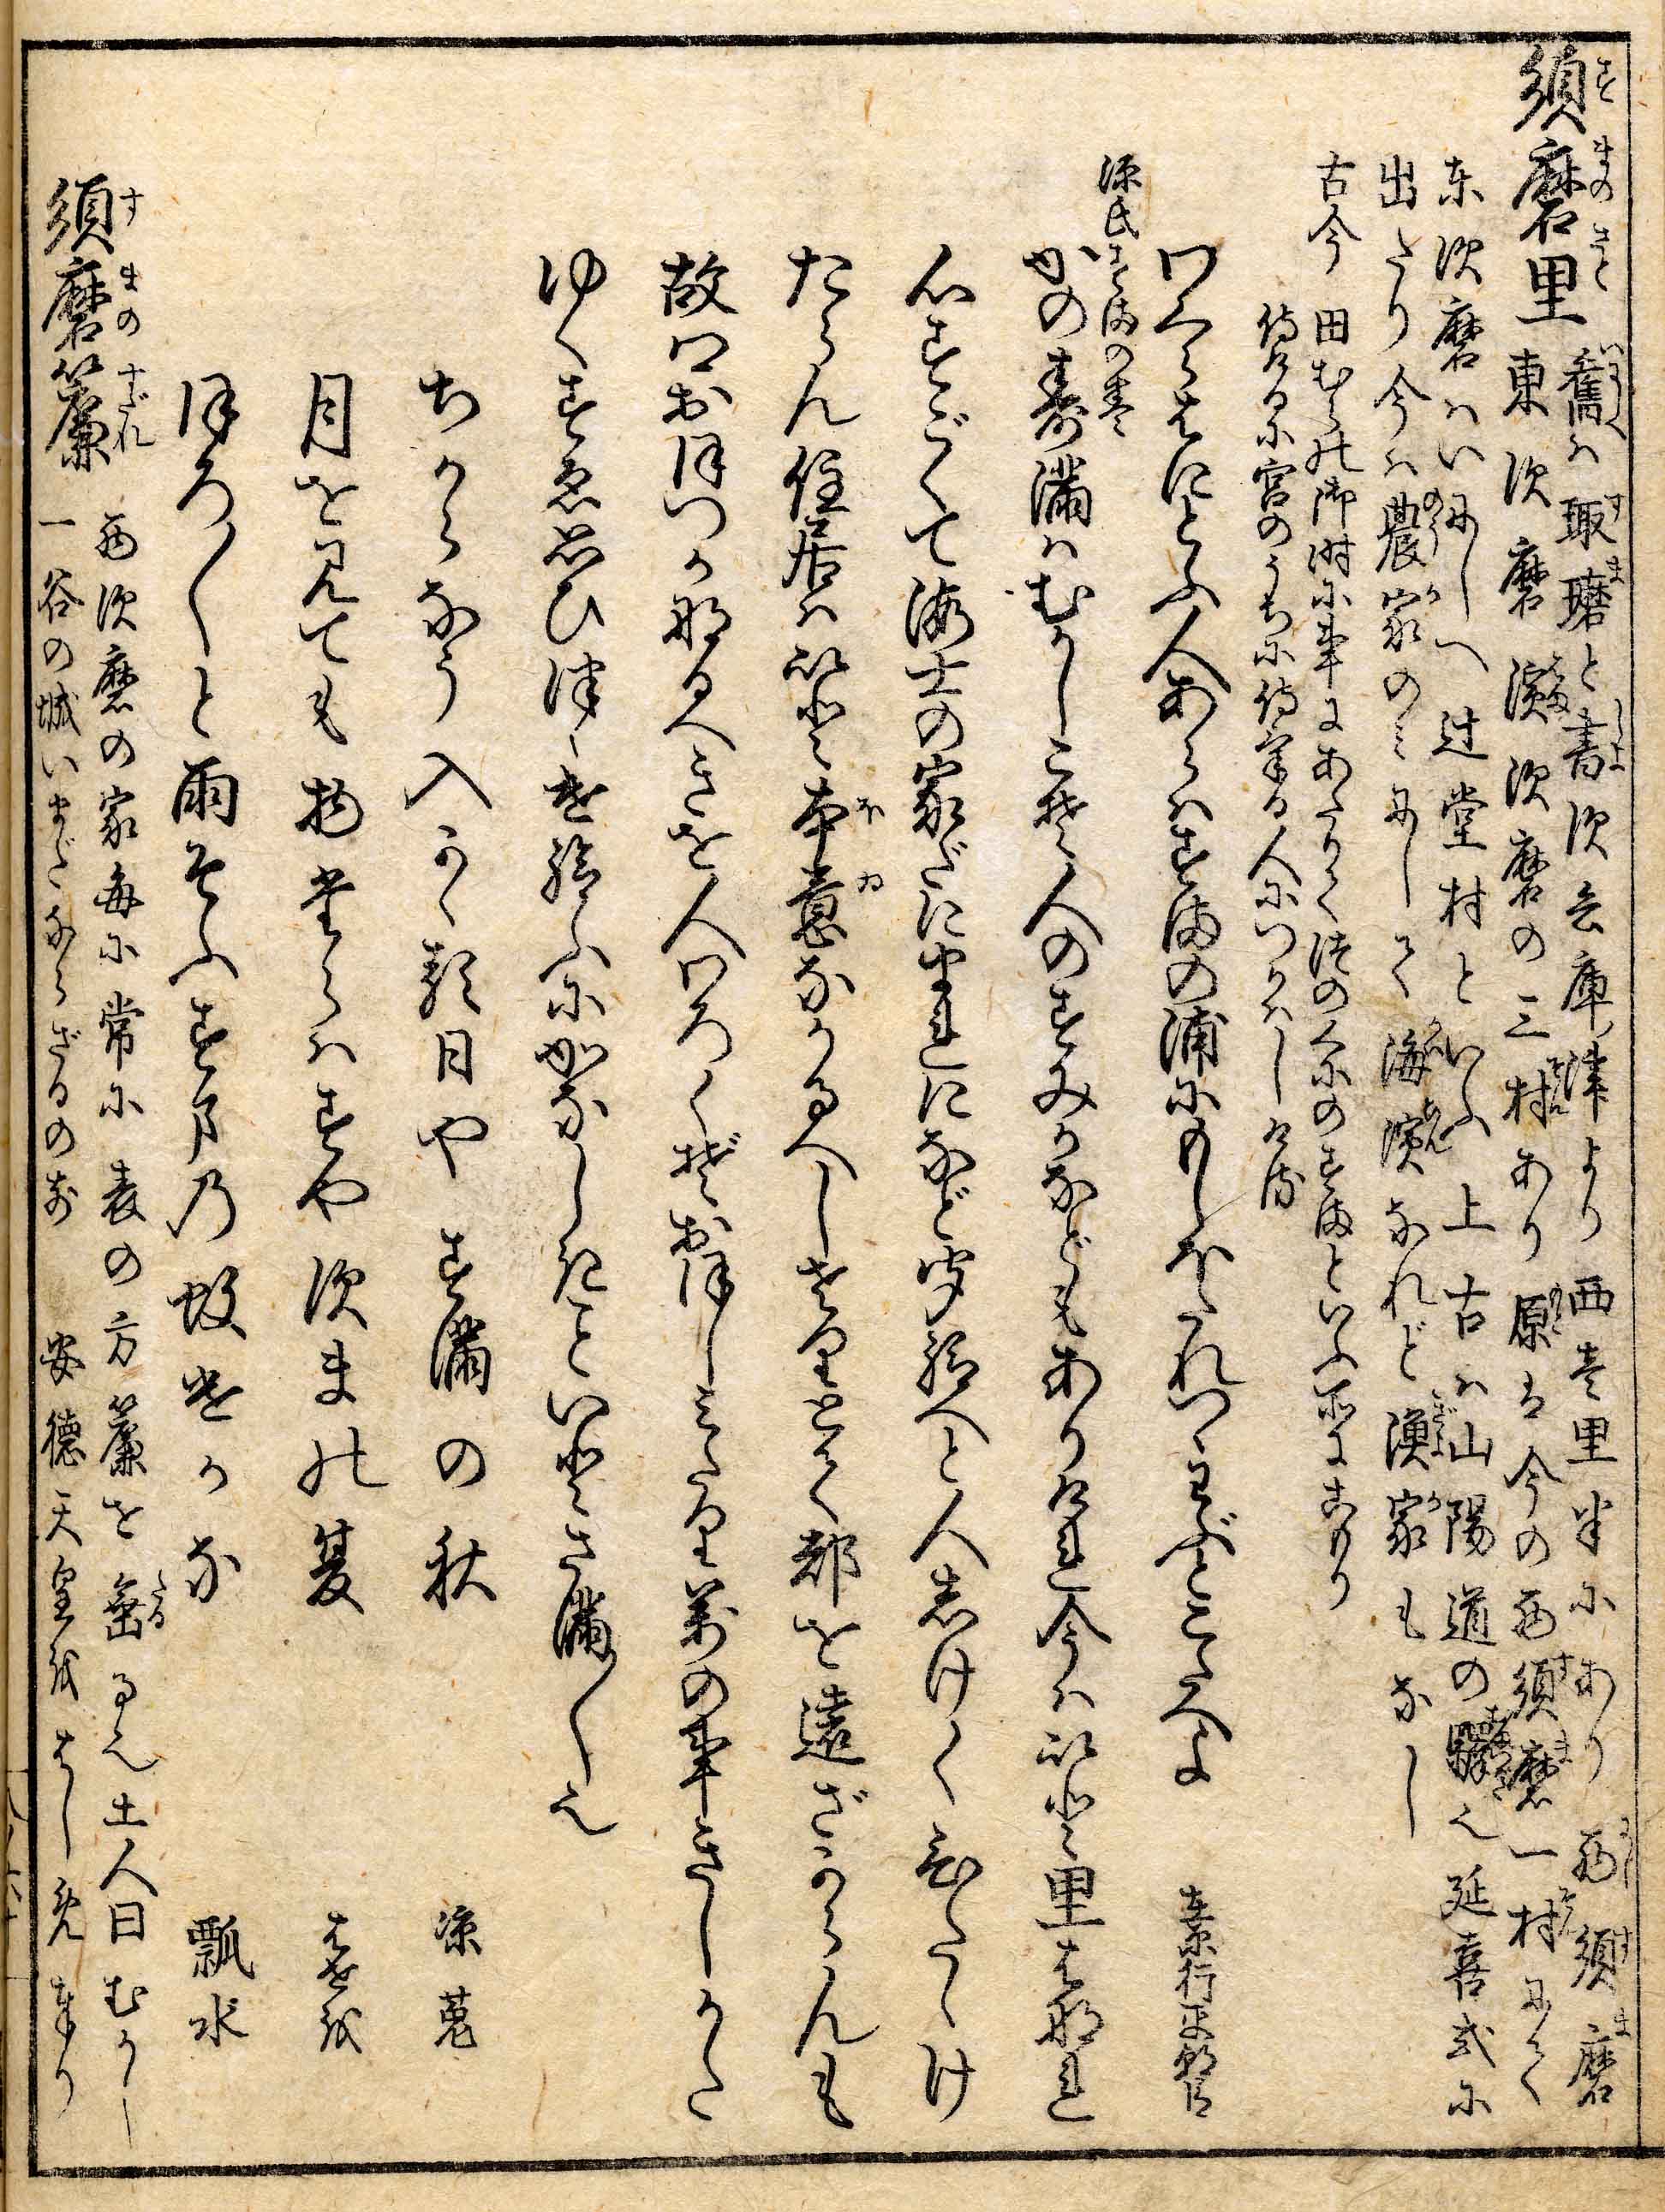 須磨里 舊は陬磨と書す兵庫津より西壱里半にあり西須磨
東須磨濱須磨の三村あり原は今の西須磨一村にて
東須磨はいにしへ辻堂村といふ上古は山陽道の驛也延喜式に
出たり今は農家のみにして海濱なれど漁家もなし
古今 田むらの御時に事にあたりて津の国のすまといふ所にこもり
侍けるに宮のうちに侍ける人につかはしける
わくらはにとふ人あらはすまの浦にもしほたれつゝわぶとこたへよ 在原行平朝臣
源氏すまの巻
かの須磨はむかしこそ人のすみかなどもありけれ今はいと里はなれ
心すごくて海士の家だにまれになど聞給へと人しけくひたゝけ
たらん住居はいと本意なかるへしさりとて都を遠ざからんも
故郷おほつかなかるへきを人わろくぞおほしみたるゝ万の事きしかた
ゆくすゑ思ひつゝけ給ふにかなしきこといとさま〳〵也
ちからなう入かゝる月や須磨の秋 涼菟
月を見ても物たらはすや須まの夏 はせを
ほろ〳〵と雨そふ須磨乃蚊やりかな 瓢水
須磨簾 西須磨の家毎に常に表の方簾を垂るゝ也土人曰むかし
一谷の城いまだならざるの前 安徳天皇をはしめ奉り